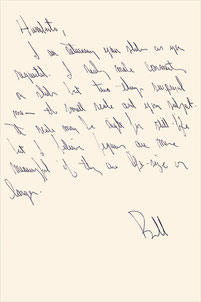 Humberto,
I am returning your slides as you
requested. I rarely make comments
on slides but two things surprised
me the small scale and your subject.
scale may be right for still life
but I believe figures are more
meaningful if they are life-size or
larger.